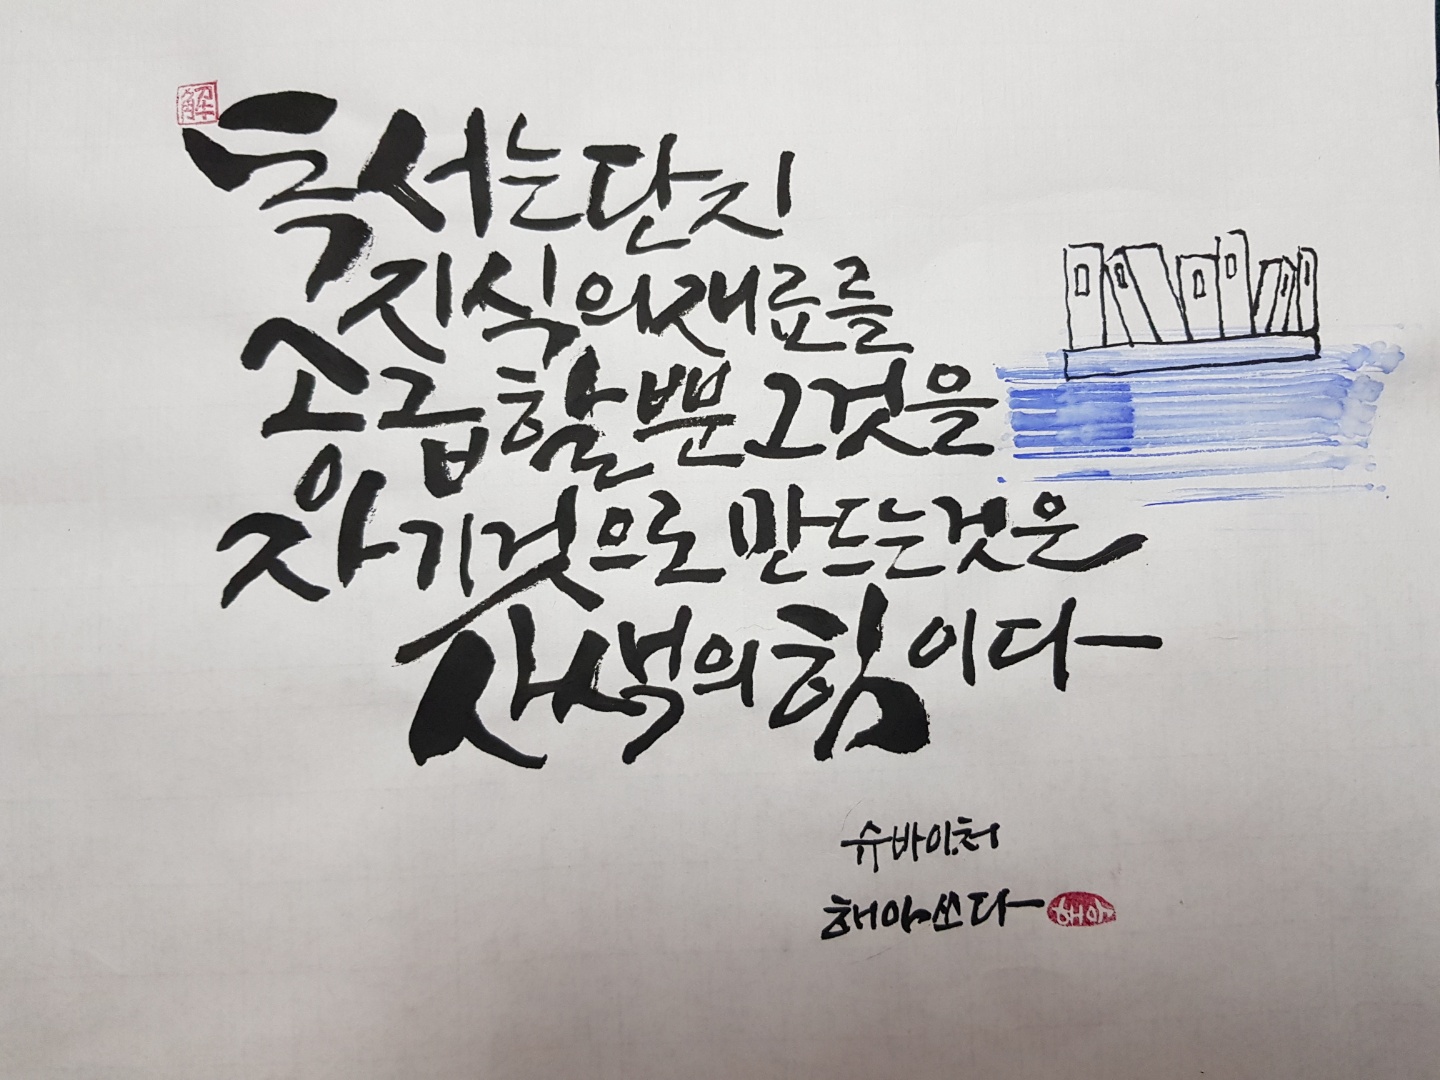 解
독서는 단지
지식의 재료를
공급할 뿐 그것을
자기것으로 만드는것은
사색의 힘이다
슈바이처
해야 쓰다
해야